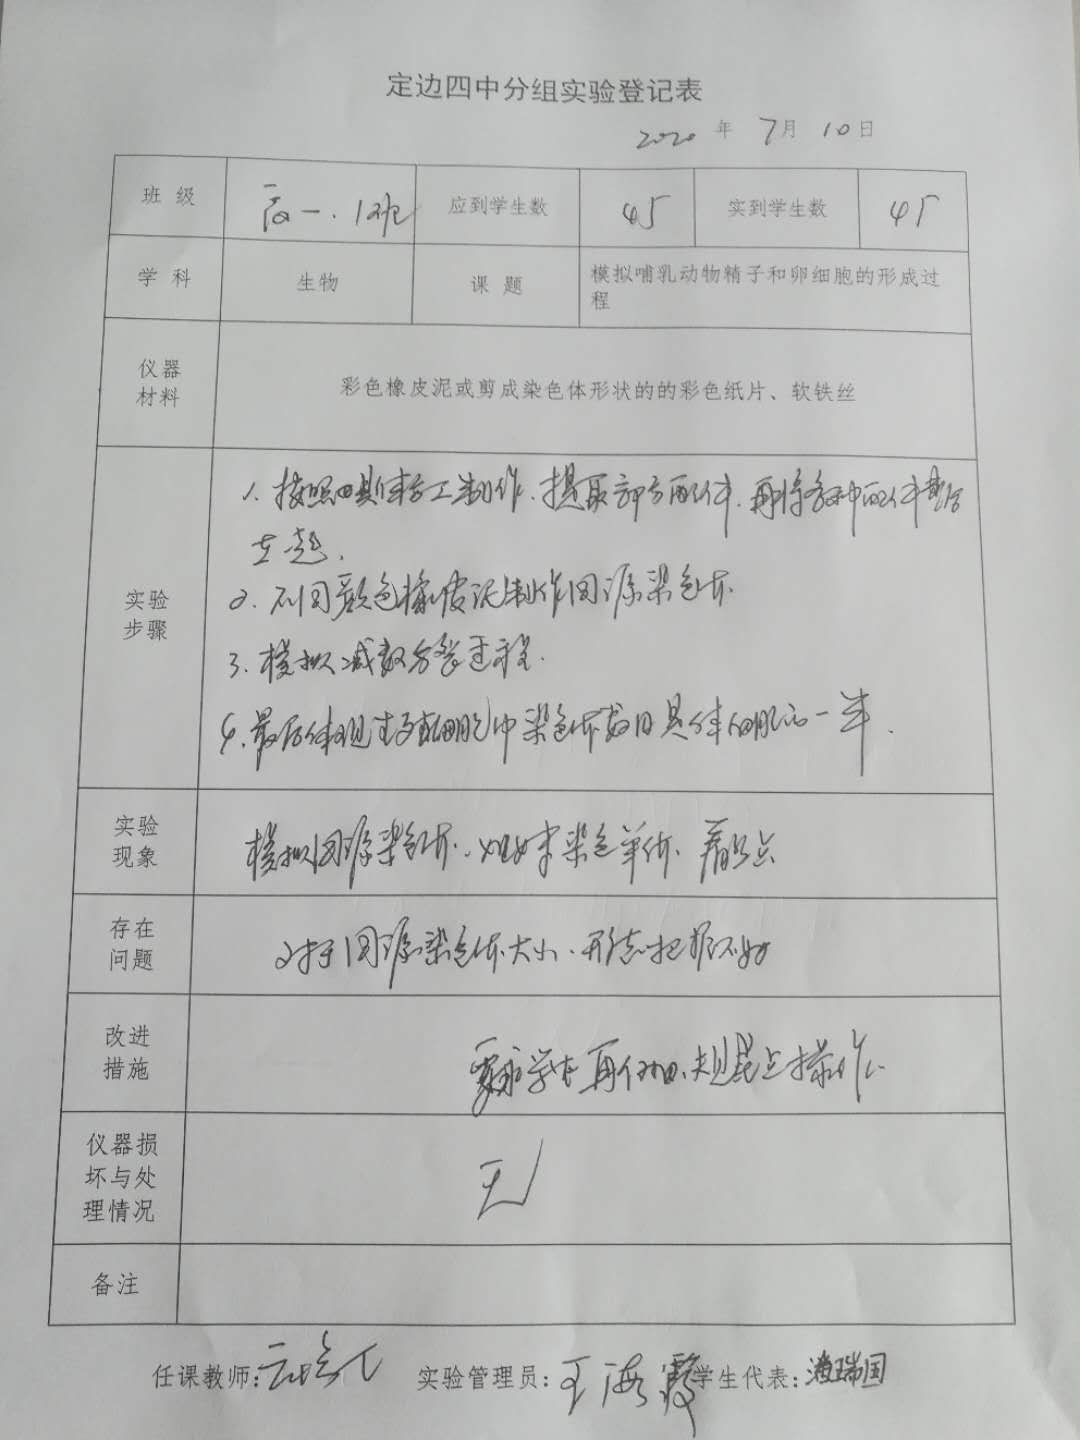 定边四中分组实验登记表
2020 年 7月 10日
班 级 高一.12班 应到学生数 45 实到学生数 45
学 科 生物 课 题 模拟哺乳动物精子和卵细胞的形成过
程
仪器
材料
彩色橡皮泥或剪成染色体形状的的彩色纸片、软铁丝
实验
步骤
1. 按照 制作.提取部分配件.再将各种配件
在一起.
2. 不同颜色橡皮泥制作同源染色体
3. 模拟减数分裂过程.
4. 最后体现生殖细胞中染色体数目是体细胞的一半.
实验
现象
模拟同源染色体.姐妹染色单体. 着丝点
存在
问题
对于同源染色体大小.形态把握不好
改进
措施
要求学生再仔细.规范点操作.
仪器损
坏与处
理情况
无
备注
任课教师: 实验管理员:王海霞 学生代表: 瑞国